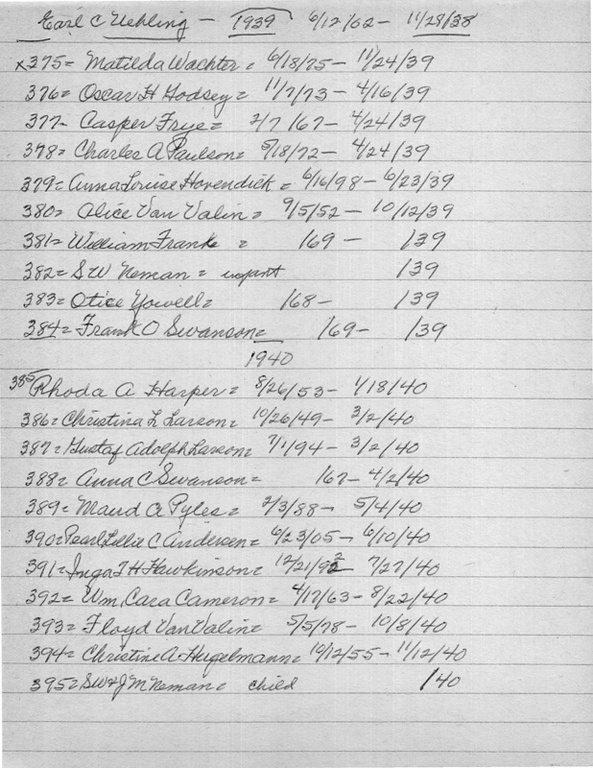 Earl C Uehling - 1939 6/12/62 - 11/28/38
x375= Matilda Wachter = 6/18/75 - 11/24/39
376= Oscar H Hodsey = 11/7/73 - 4/16/39
377- Casper Frye = 2/7/67 - 4/24/39
378= Charles A Paulson = 5/18/72 - 4/24/39
379= Anna Louise Hovendick = 6/16/98 - 6/23/39
380= Alice Van Valin = 9/5/52 - 10/12/39
381= William Frank = /69 - /39
382= S W Neman = infant /39
383= Otice Yowell = /68 - /39
384= Frank O Swanson = /69 - /39
1940
385 Rhoda A Harper = 8/26/53 - 1/18/40
386= Christina L Larson = 10/26/49 - 3/2/40
387= Gustaf Adolph Larson = 7/1/94 - 3/2/40
388= Anna C Swanson = /67 - 4/2/40
389= Maud A Pyles = 2/3/88 - 5/4/40
390= Pearl Lillie C Andersen = 6/23/05 - 6/10/40
391= Inga T H Hawkinson = 12/21/92 - 7/27/40
392= Wm, Cara Cameron = 4/17/63 - 8/22/40
393= Floyd Van Valin = 5/5/78 - 10/8/40
394= Christine A. Hugelmann = 10/12/55 - 11/12/40
395= SW & J M Neman = child /40